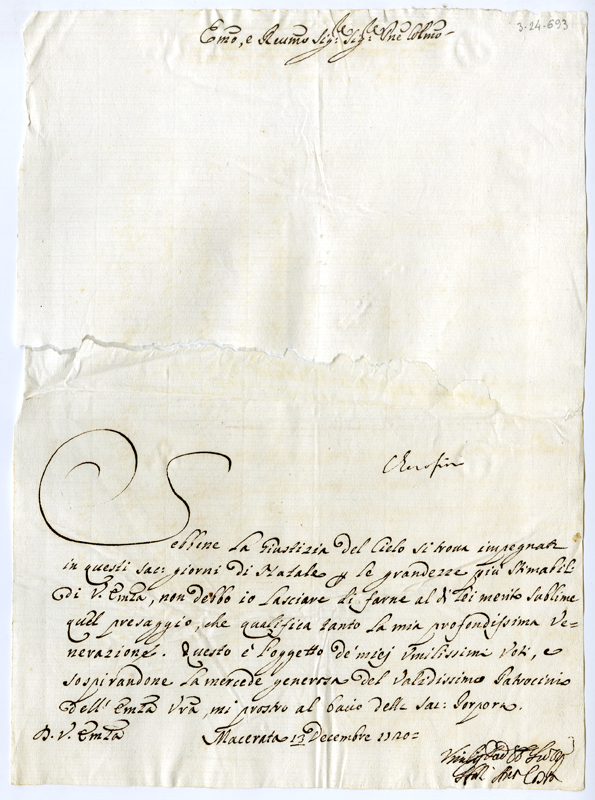 3-24-693
Emo, e Revmo Sig.r Sig.r Pne Colmo
Sebbene La Giustizia del Cielo si trova impegnata
in questi Sac: giorni di Natale p le grandezze più stimabili
di V. Emza, non debbo io Lasciare di farne al di Lei merito sublime
quel presaggio, che qualifica tanto La mia profondissima Ve=
nerazione. Questo è l'oggetto de' miej Vmilissimi Voti, e
sospirandone La mercede generosa del Validissimo Patrocinio
Dell' Emza Vra, mi prostro al bacio della Sac: Porpora.
D. V. Emza Macerata 13 Decembre